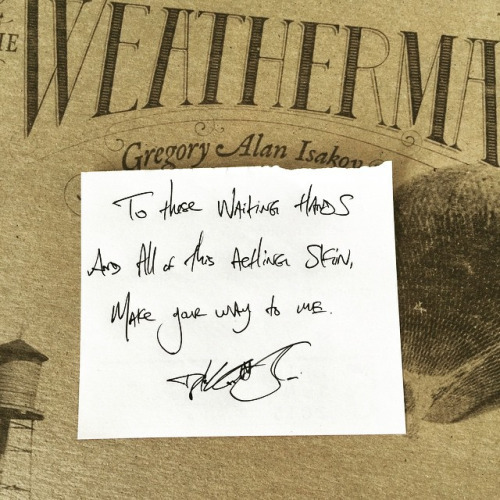 THE WEATHERMA
Gregory Alan Isakov
To these WAitiNG HANDS
AND All of this AcHiNG SkiN,
MAke your wAy to me.